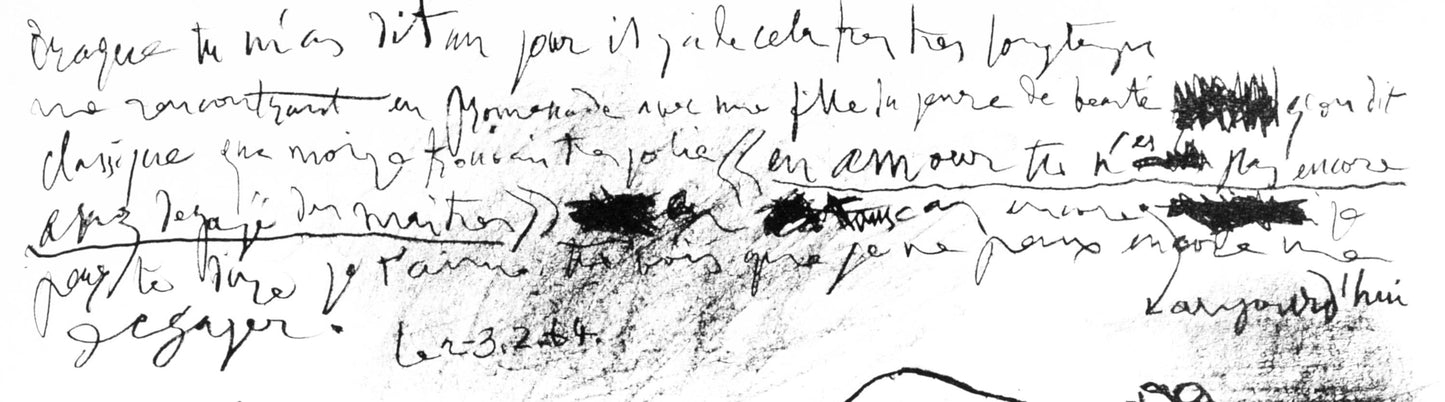 Braque tu m'as dit un jour il y a de cela très très longtemps
me rencontrant en promenade avec une fille du genre de beauté qu'on dit
classique que moi je trouvais très jolie « en amour tu n'es pas encore
assez dégagé des maîtres » en tous cas encore je
peux te dire je t'aime tu vois que je ne peux encore me
x aujourd'hui
dégager.
Le 2-3.2.64.